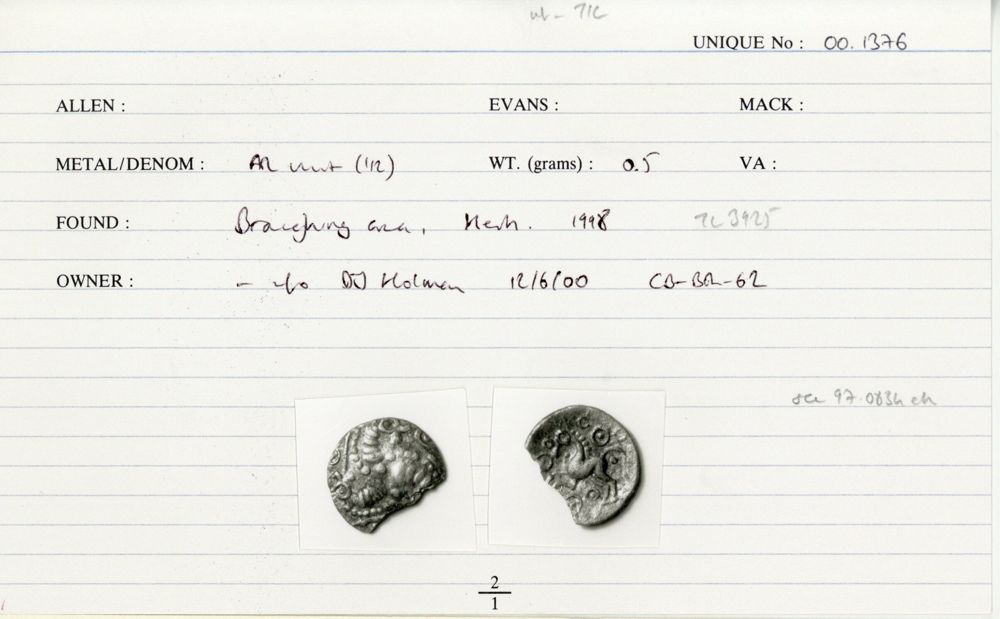 UNIQUE No : 00.1376
ALLEN : EVANS : MACK :
METAL/DENOM : AR unit (1/2) WT. (grams) : 0.5 VA :
FOUND : Braughing area, Herts. 1998 TL 3925
OWNER : – DJ Holman 12/6/00 CB-BR-62
see 97.0834
2
1